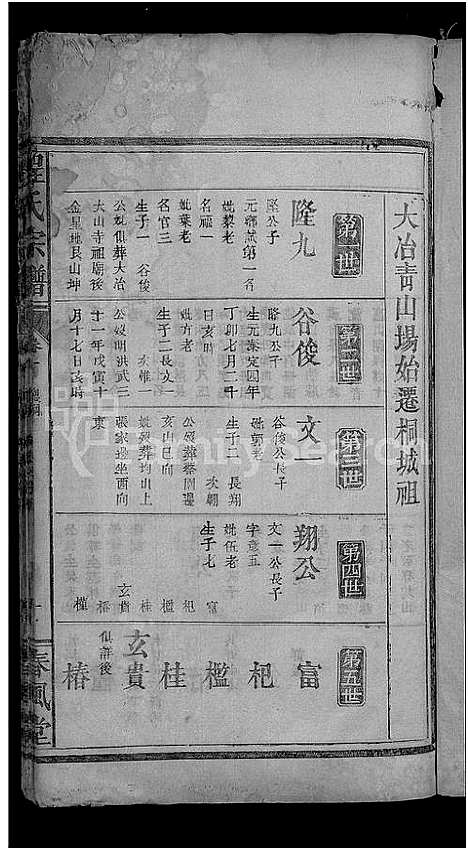 大冶靑山塲始遷桐城祖
第一世
隆九
陞公子
元鄉試第一名
妣黎老
名福一
妣葉老
名官三
生子一 谷俊
公妣俱葬大冶
大山寺祖廟後
金里地艮山坤
第二世
谷俊
隆九公子
生元泰定四年
丁卯七月二十
日亥時
妣方老
生子二 長文一
次惟一
公歿明洪武三
十一年戊寅十
月十七日亥時
第三世
文一
谷俊公長子
妣胡老
生子二 長翔
次朝
公歿葬麥園邊
亥山巳向
妣歿葬均山上
張家塆坐酉向
東
第四世
翔公
文一公長子
字章五
妣伍老
生子七 富
杞
檻
桂
玄貴
梧
椿
第五世
富
杞
檻
桂
玄貴
仙譜後
椿
氏宗譜
春風堂